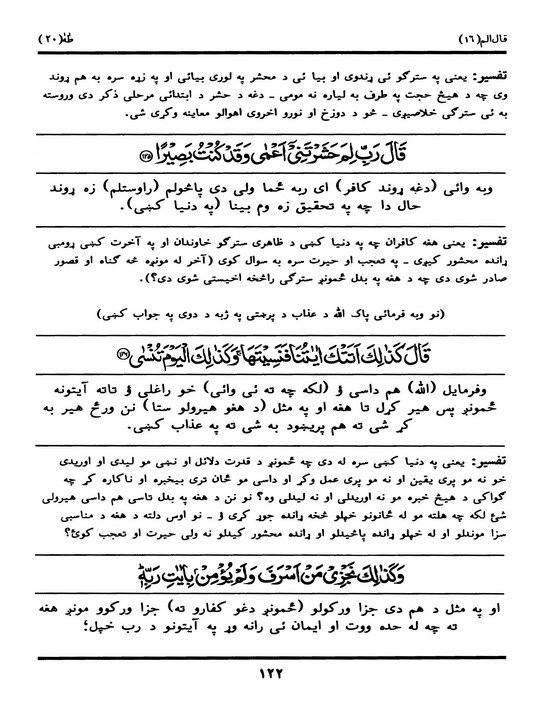 قال الم(١٦)
طٰهٰ(٢٠)
تفسیر: یعنی په سترګو ئی ړندوی او بیا ئی د محشر په لوری بیائی او په زړه سره به هم ړوند
وی چه د هیڅ حجت په طرف به لیاره نه مومی ـ دغه د حشر د ابتدائی مرحلی ذکر دی وروسته
به ئی سترګی خلاصیږی ـ څو د دوزخ او نورو اخروی اهوالو معاینه وکړی شی.
قَالَ رَبِّ لِمَ حَشَرْتَنِیْۤ اَعْمٰی وَقَدْ كُنْتُ بَصِیْرًا ﴿١٢٥﴾
وبه وائی (دغه ړوند کافر) ای ربه ځما ولی دی پاڅولم (راوستلم) زه ړوند
حال دا چه په تحقیق زه وم بینا (په دنیا کښی).
تفسیر: یعنی هغه کافران چه په دنیا کښی د ظاهری سترګو خاوندان او په آخرت کښی ړومبی
ړانده محشور کیږی ـ په تعجب او حیرت سره به سوال کوی (آخر له مونږه څه ګناه او قصور
صادر شوی دی چه د هغه په بدل ځمونږ سترګی راڅخه اخیستی شوی دی؟).
(نو وبه فرمائی پاک الله د عذاب د پرښتی په ژبه د دوی په جواب کښی)
قَالَ كَذٰلِكَ اَتَتْكَ اٰیٰتُنَا فَنَسِیْتَهَا ۚ وَكَذٰلِكَ الْیَوْمَ تُنْسٰی ﴿١٢٦﴾
وفرمایل (الله) هم داسی ؤ (لکه چه ته ئی وائی) خو راغلی ؤ تاته آیتونه
ځمونږ پس هیر کړل تا هغه او په مثل (د هغو هیرولو ستا) نن ورځ هیر به
کړ شی ته هم پریښود به شی ته په عذاب کښی.
تفسیر: یعنی په دنیا کښی سره له دی چه ځمونږ د قدرت دلائل او نښی مو لیدی او اوریدی
خو نه مو پری یقین او نه مو پری عمل وکړ او داسی مو ځان تری بیخبره او ناکاره کړ چه
ګواکی د هیڅ خبره مو نه اوریدلی او نه لیدلی وه؟ نو نن د هغه په بدل تاسی هم داسی هیرولی
شئ لکه چه هلته مو له ځانونو خپلو څخه ړانده جوړ کړی ؤ ـ نو اوس دلته د هغه د مناسبی
سزا موندلو او له خپلو ړانده پاڅیدلو او ړانده محشور کیدلو نه ولی حیرت او تعجب کوئ؟
وَكَذٰلِكَ نَجْزِیْ مَنْ اَسْرَفَ وَلَمْ یُؤْمِنْۢ بِاٰیٰتِ رَبِّهٖ ؕ
او په مثل د هم دی جزا ورکولو (ځمونږ دغو کفارو ته) جزا ورکوو مونږ هغه
ته چه له حده ووت او ایمان ئی رانه وړ په آیتونو د رب خپل؛
١٢٢